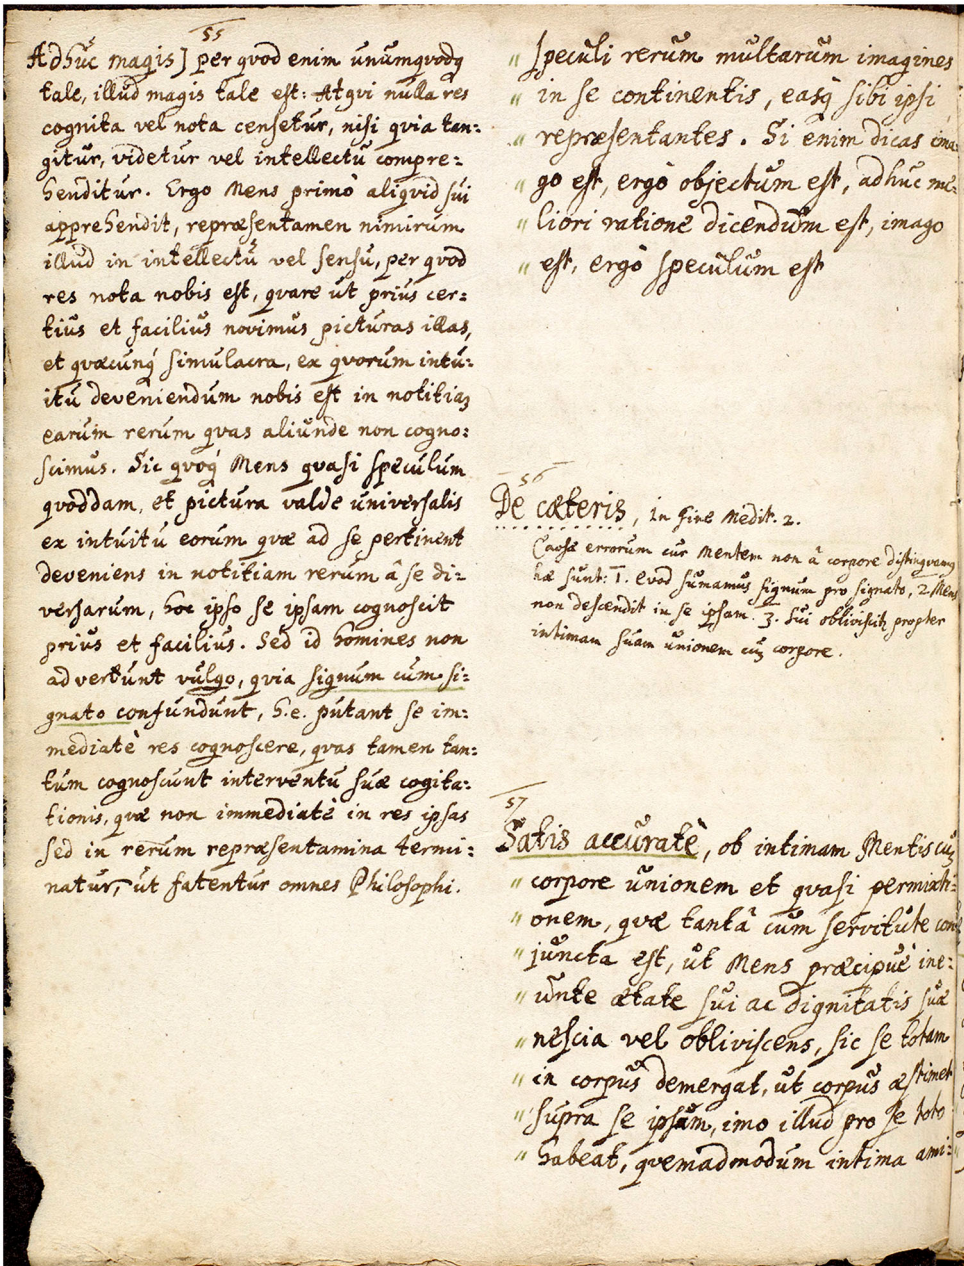 55
Adhuc magis] per qvod enim unumqvodq
tale, illud magis tale est: Atqvi nulla res
cognita vel nota censetur, nisi qvia tan:
gitur, videtur vel intellectu compre:
henditur. Ergo Mens primò aliqvid sui
apprehendit, repræsentamen nimirum
illud in intellectu vel sensu, per qvod
res nota nobis est, qvare ut prius cer:
tius et facilius novimus picturas illas,
et qvæcunq simulacra, ex qvorum intu:
itu deveniendum nobis est in notitiaz
earum rerum qvas aliunde non cogno:
scimus. Sic qvoq Mens qvasi speculum
qvoddam, et pictura valde universalis
ex intuitu eorum qvæ ad se pertinent
deveniens in notitiam rerum â se di:
versarum, hoc ipso se ipsam cognoscit
prius et facilius. Sed id homines non
advertunt vulgo, qvia signum cum si:
gnato confundunt, h.e. putant se im:
mediatè res cognoscere, qvas tamen tan:
tum cognoscunt interventu suæ cogita:
tionis, qvæ non immediatè in res ipsas
sed in rerum repræsentamina termi:
natur, ut fatentur omnes Philosophi.
" speculi rerum multarum imagines
" in se continentis, easq sibi ipsi
" repræsentantes. Si enim dicas ima:
" go est, ergò objectum est, adhuc me:
" liori ratione dicendum est, imago
" est, ergò speculum est
56
De cæteris, in fine Medit. 2.
Causæ errorum cur Mentem non â corpore distingvamq
hæ sunt: 1. Qvod sumamus signum pro signato, 2. Mens
non descendit in se ipsam. 3. Sui obliviscitz propter
intimam suam unionem cuz corpore.
57
Satis accuratè, ob intimam Mentis cuz
" corpore unionem et qvasi permixti:
" onem, qvæ tantâ cum servitute con:
" juncta est, ut Mens præcipuè ine:
" unte ætate sui ac dignitatis suæ
" nescia vel obliviscens, sic se totam
" in corpus demergat, ut corpus æstimet
" supra se ipsam, imo illud pro se toto
" habeat, qvemadmodum intima ami: